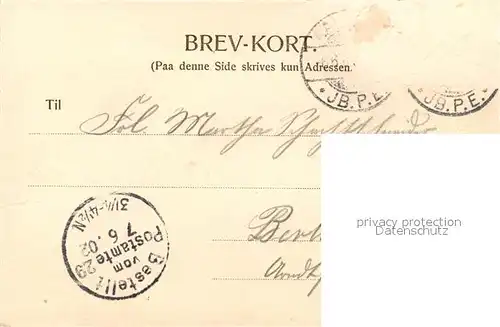 BREV-KORT.
(Paa denne Side skrives kun Adressen.)
JB.P.E.
JB.P.E.
Til
Frl. Martha
privacy protection
watermark
Berl
Bestellt
vom
Postamte 29
7 6. 02
3½-4½N